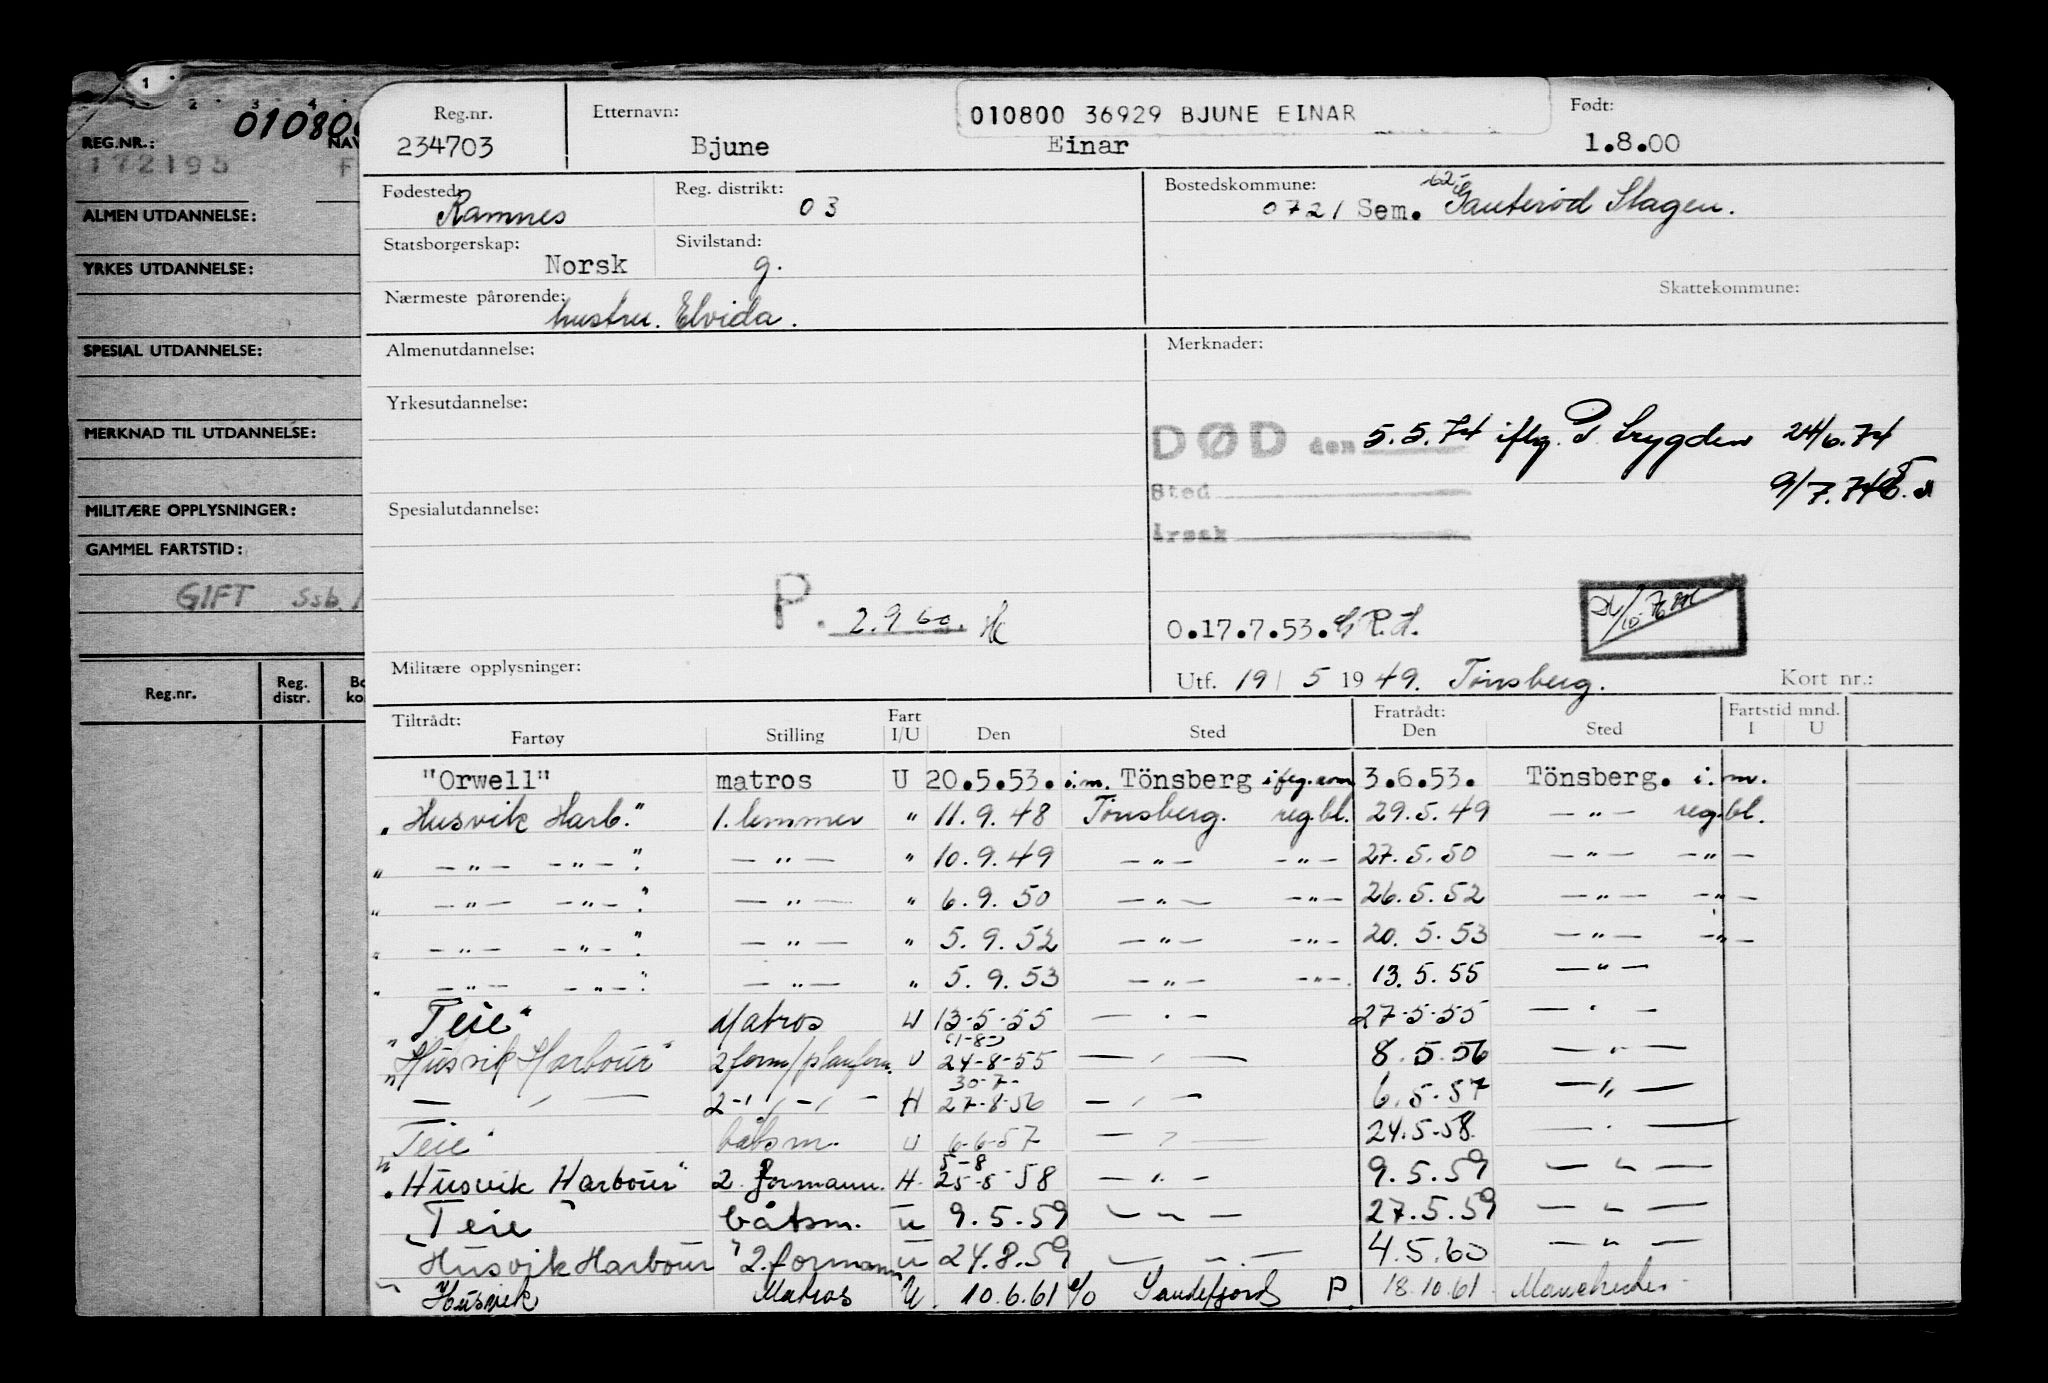 1
2 3 4
010800
REG.NR.: NAV
172195 F
ALMEN UTDANNELSE:
YRKES UTDANNELSE:
SPESIAL UTDANNELSE:
MERKNAD TIL UTDANNELSE:
MILITÆRE OPPLYSNINGER:
GAMMEL FARTSTID:
GIFT Ssb.
Reg.nr. Reg. distr. Bo ko
Reg.nr. Etternavn: 010800 36929 BJUNE EINAR Født:
234703 Bjune Einar 1.8.00
Fødested: Ramnes Reg. distrikt: 03 Bostedskommune: 0721 Sem. Slagen.
Statsborgerskap: Norsk Sivilstand: g.
Nærmeste pårørende: hustru. Elvida. Skattekommune:
Almenutdannelse: Merknader:
Yrkesutdannelse:
DØD den 5.5.74 iflg. trygden 24/6.74
Sted 9/7.74
Spesialutdannelse: Årsak
P. 2.9.60. O.17.7.53.
Militære opplysninger: Utf. 19/5 1949. Tönsberg. Kort nr.:
Tiltrådt: Fart Fratrådt: Fartstid mnd.
Fartøy Stilling I/U Den Sted Den Sted I U
"Orwell" matros U 20.5.53. i.m. Tönsberg 3.6.53. Tönsberg. i.m.
"Husvik Harb." 1. lemmer " 11.9.48 Tönsberg. reg.bl. 29.5.49 -"- reg.bl.
" -"- -"- " -"- " 10.9.49 -"- -"- 27.5.50 -"- -"-
" -"- -"- " -"- " 6.9.50 -"- -"- 26.5.52 -"- -"-
" -"- -"- " -"- " 5.9.52 -"- -"- 20.5.53 -"- -"-
" -"- -"- " -"- " 5.9.53 -"- -"- 13.5.55 -"-
"Teie" Matros U 13-5-55 -"- 27-5-55 -"-
(1-8-)
"Husvik Harbour" 2 form/planform. U 24-8-55 -"- 8.5.56 -"-
30-7-
-"- 2-"-"- H 27-8-56 -"- 6.5-57 -"-
"Teie" båtsm. U 6-6-57 -"- 24.5-58. -"-
5-8
"Husvik Harbour" 2. formann. H. 25-8-58 -"- 9.5.59 -"-
"Teie" båtsm. U 9.5.59 -"- 27.5.59 -"-
"Husvik Harbour" 2. formann U 24.8.59 -"- 4.5.60 -"-
Husvik Matros U. 10.6.61 Sandefjord P. 18.10.61 Manchester